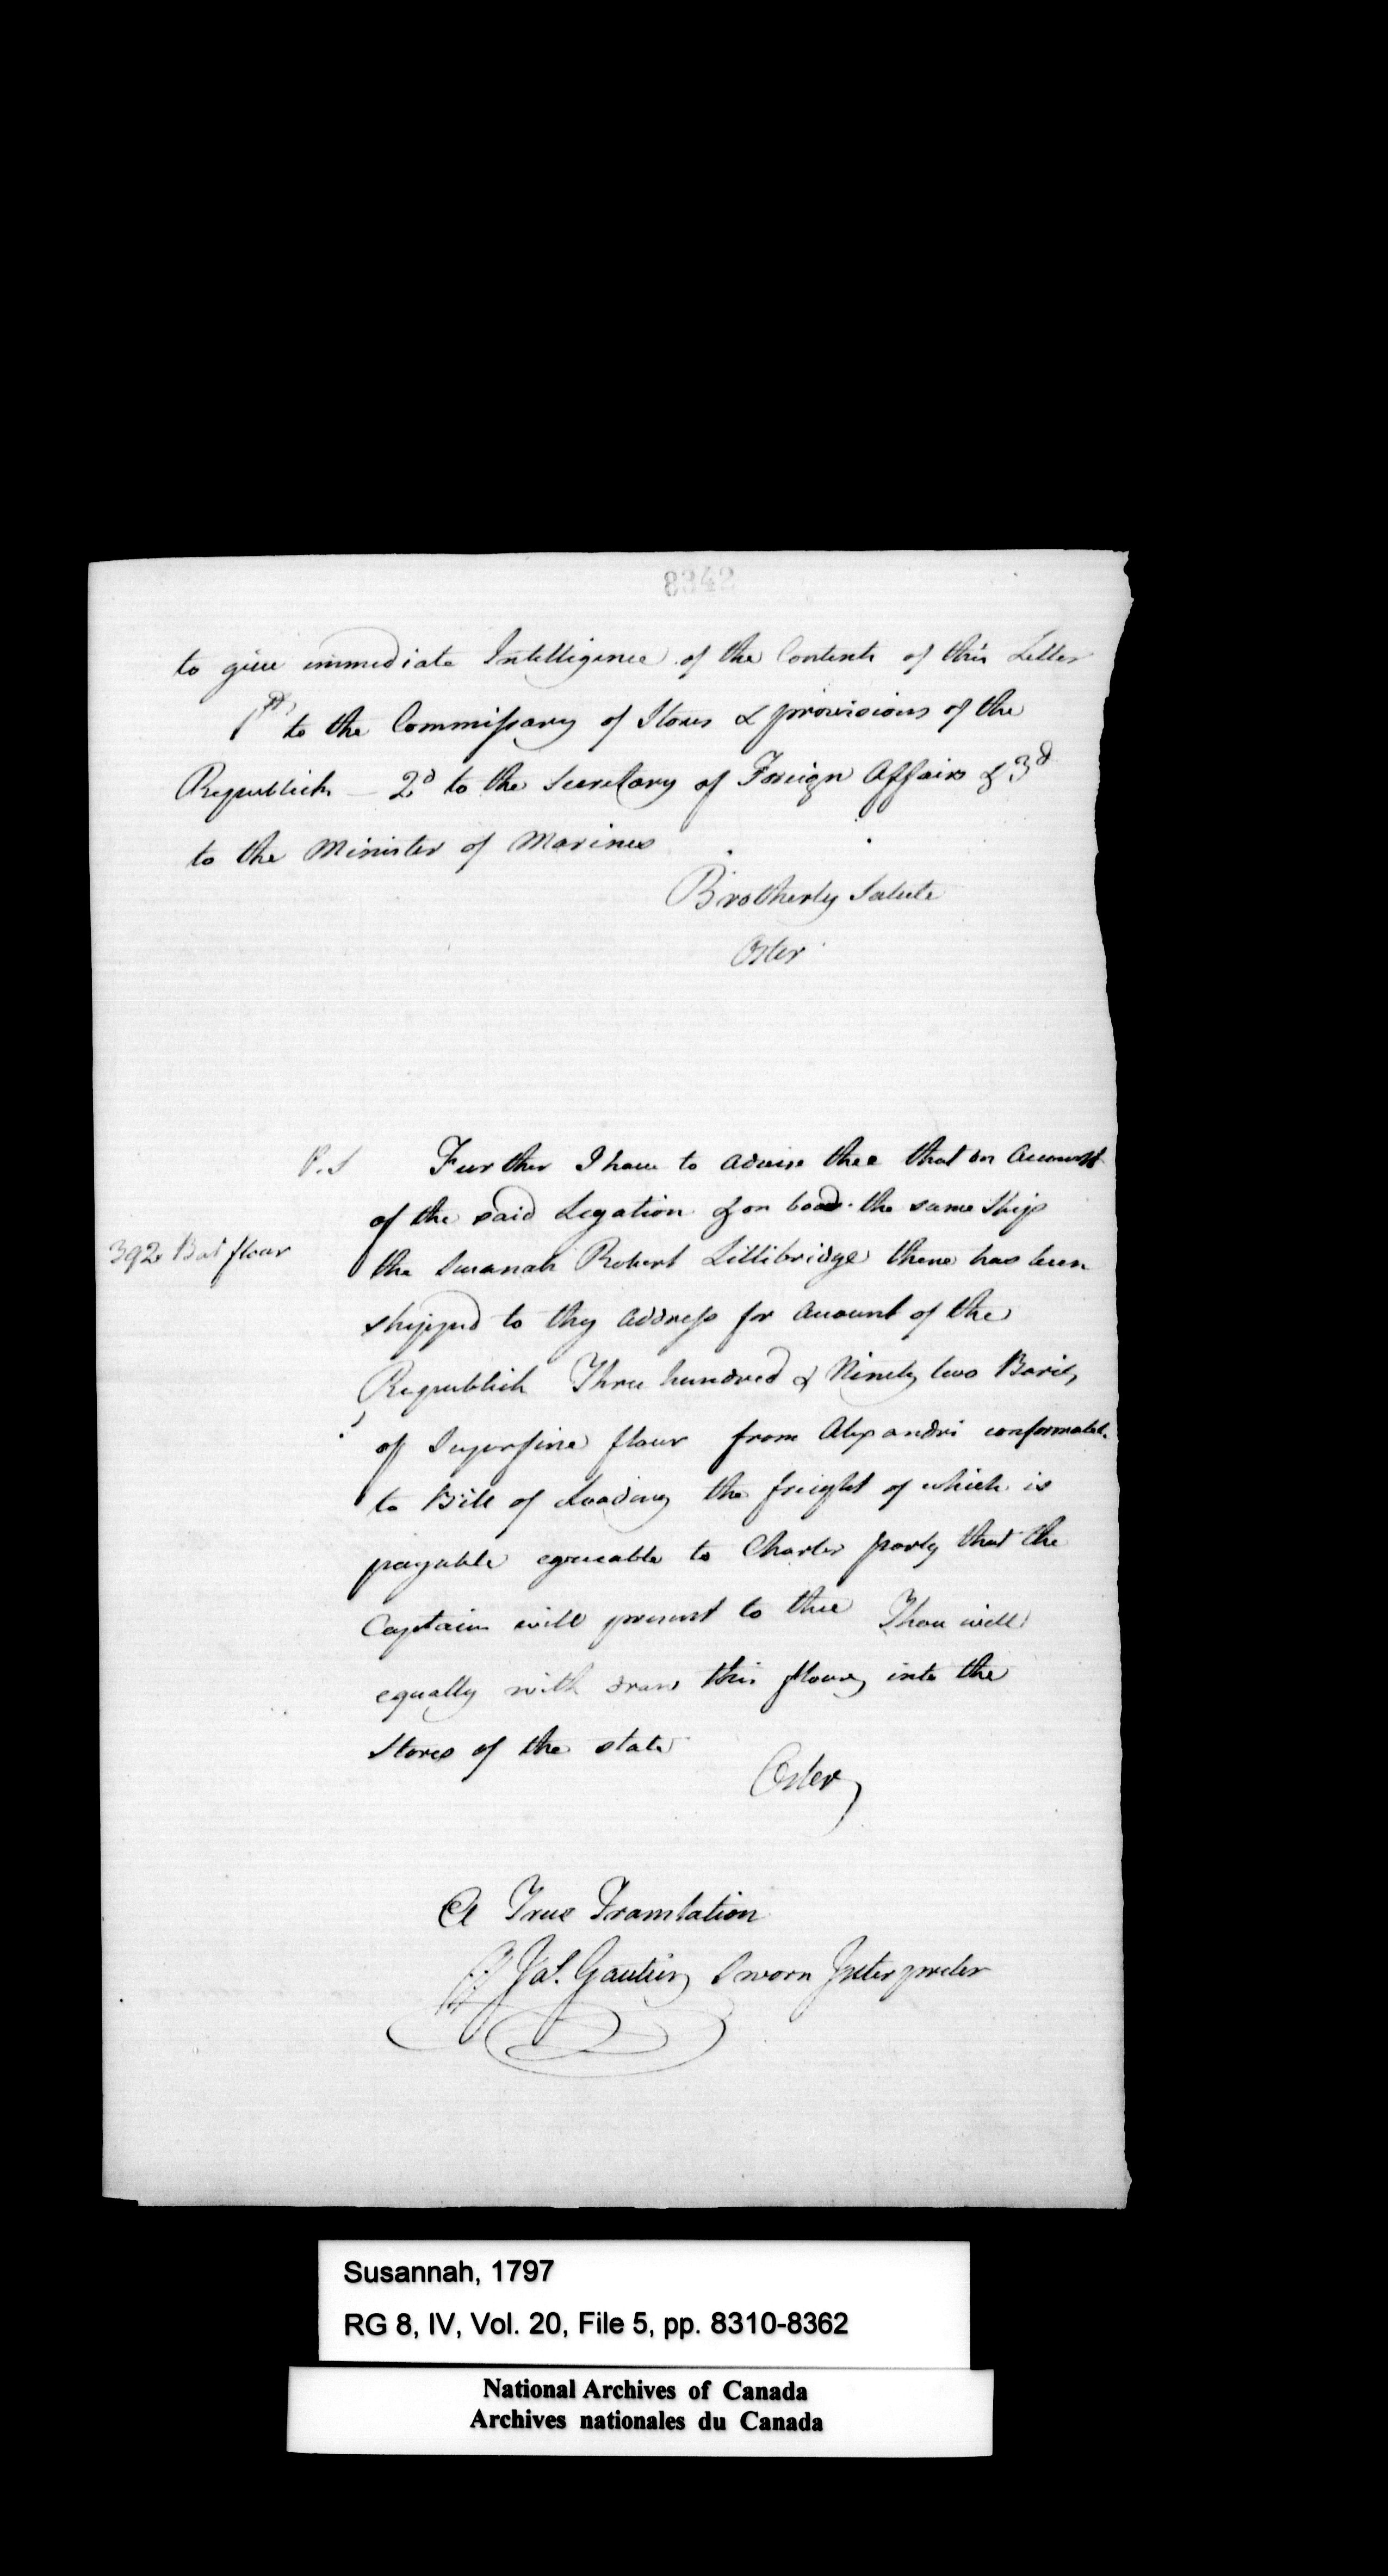 8342
to give immediate Intelligence of the Contents of this Letter
1st to the Commissary of Stores & provisions of the
Republick — 2d to the Secretary of Foreign Affairs & 3d
to the Minister of Marines
Brotherly Salute
Oster
P.S Further I have to advise thee that on Account
of the said Legation & on board the same Ship
392 Bar flour
the Susanah Robert Lillibridge there has been
shipped to thy Address for Account of the
Republick Three hundred & Ninety two Barils
of Superfine flour from Alexandri conformabl.
to Bill of Loading the freight of which is
payable agreeable to Charter party that the
Captain will present to thee Thou will
equally with draw this flour into the
Stores of the state
Oster
A True Translation
Jas. Gautier Sworn Interpreter
Susannah, 1797
RG 8, IV, Vol. 20, File 5, pp. 8310-8362
National Archives of Canada
Archives nationales du Canada